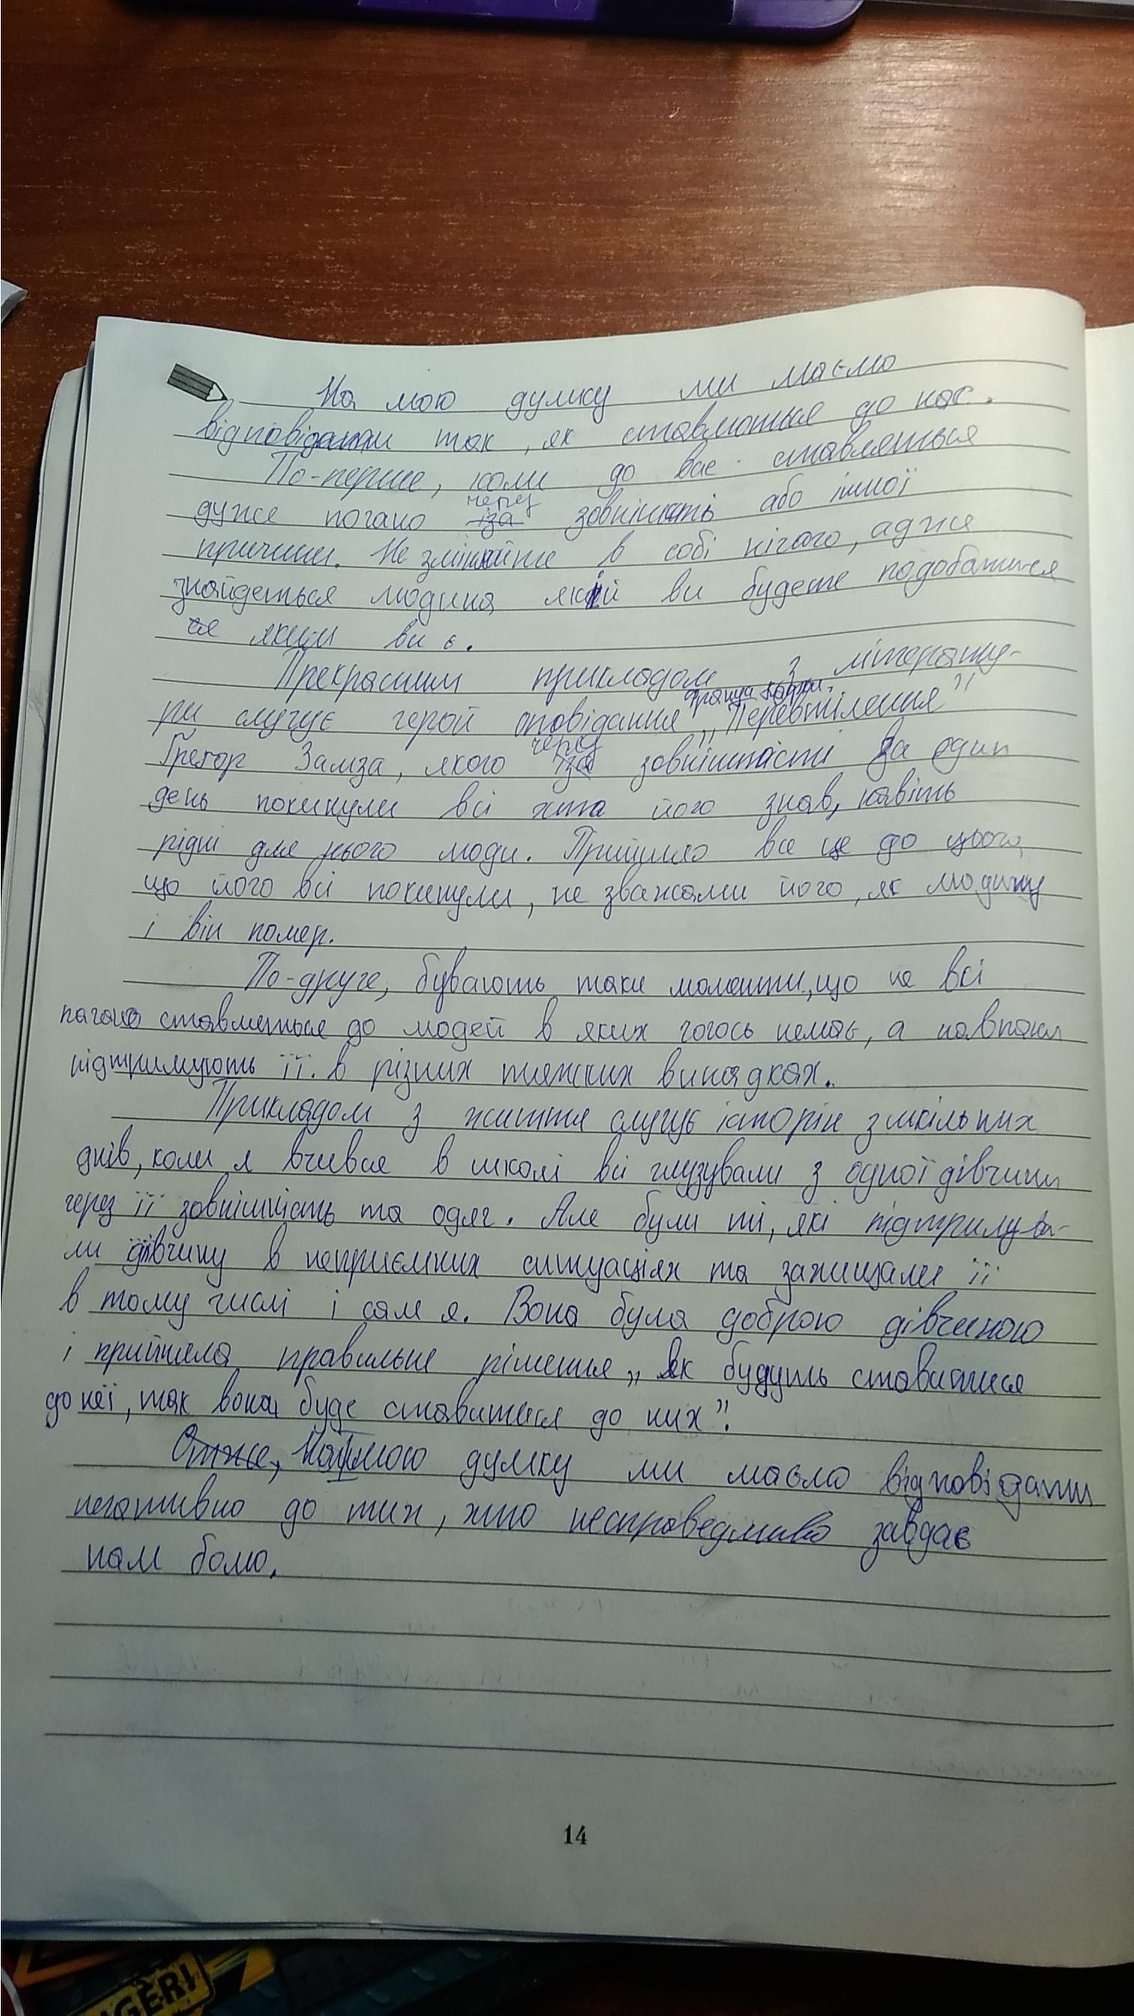 На мою думку ми маємо
відповідати так, як ставляться до нас.
По-перше, коли до вас ставляться
дуже погано через зовнішність або іншої
причини. Не змінюйте в собі нічого, адже
знайдеться людина якій ви будете подобатися
яким ви є.
Прекрасним прикладом з літерату-
ри слугує герой оповідання Франца Кафки „Перевтілення”
Грегор Замза, якого через зовнішності за один
день покинули всі хто його знав, навіть
рідні для нього люди. Прийшло все це до цього,
що його всі покинули, не зважали його, як людину
і він помер.
По-друге, бувають таки моменти, що не всі
погано ставляться до людей в яких чогось немає, а навпаки
підтримують її. в різних тяжких випадках.
Прикладом з життя слугує історія з шкільних
днів, коли я вчився в школі всі глузували з одної дівчини
через її зовнішність та одяг. Але були ті, які підтримува-
ли дівчину в неприємних ситуаціях та захищали її
в тому числі і сам я. Вона була доброю дівчиною
і прийняла правильне рішення „Як будуть ставитися
до неї, так вона буде ставитися до них”.
Отже, На мою думку ми маємо відповідати
негативно до тих, хто несправедливо завдає
нам болю.
14
GERI